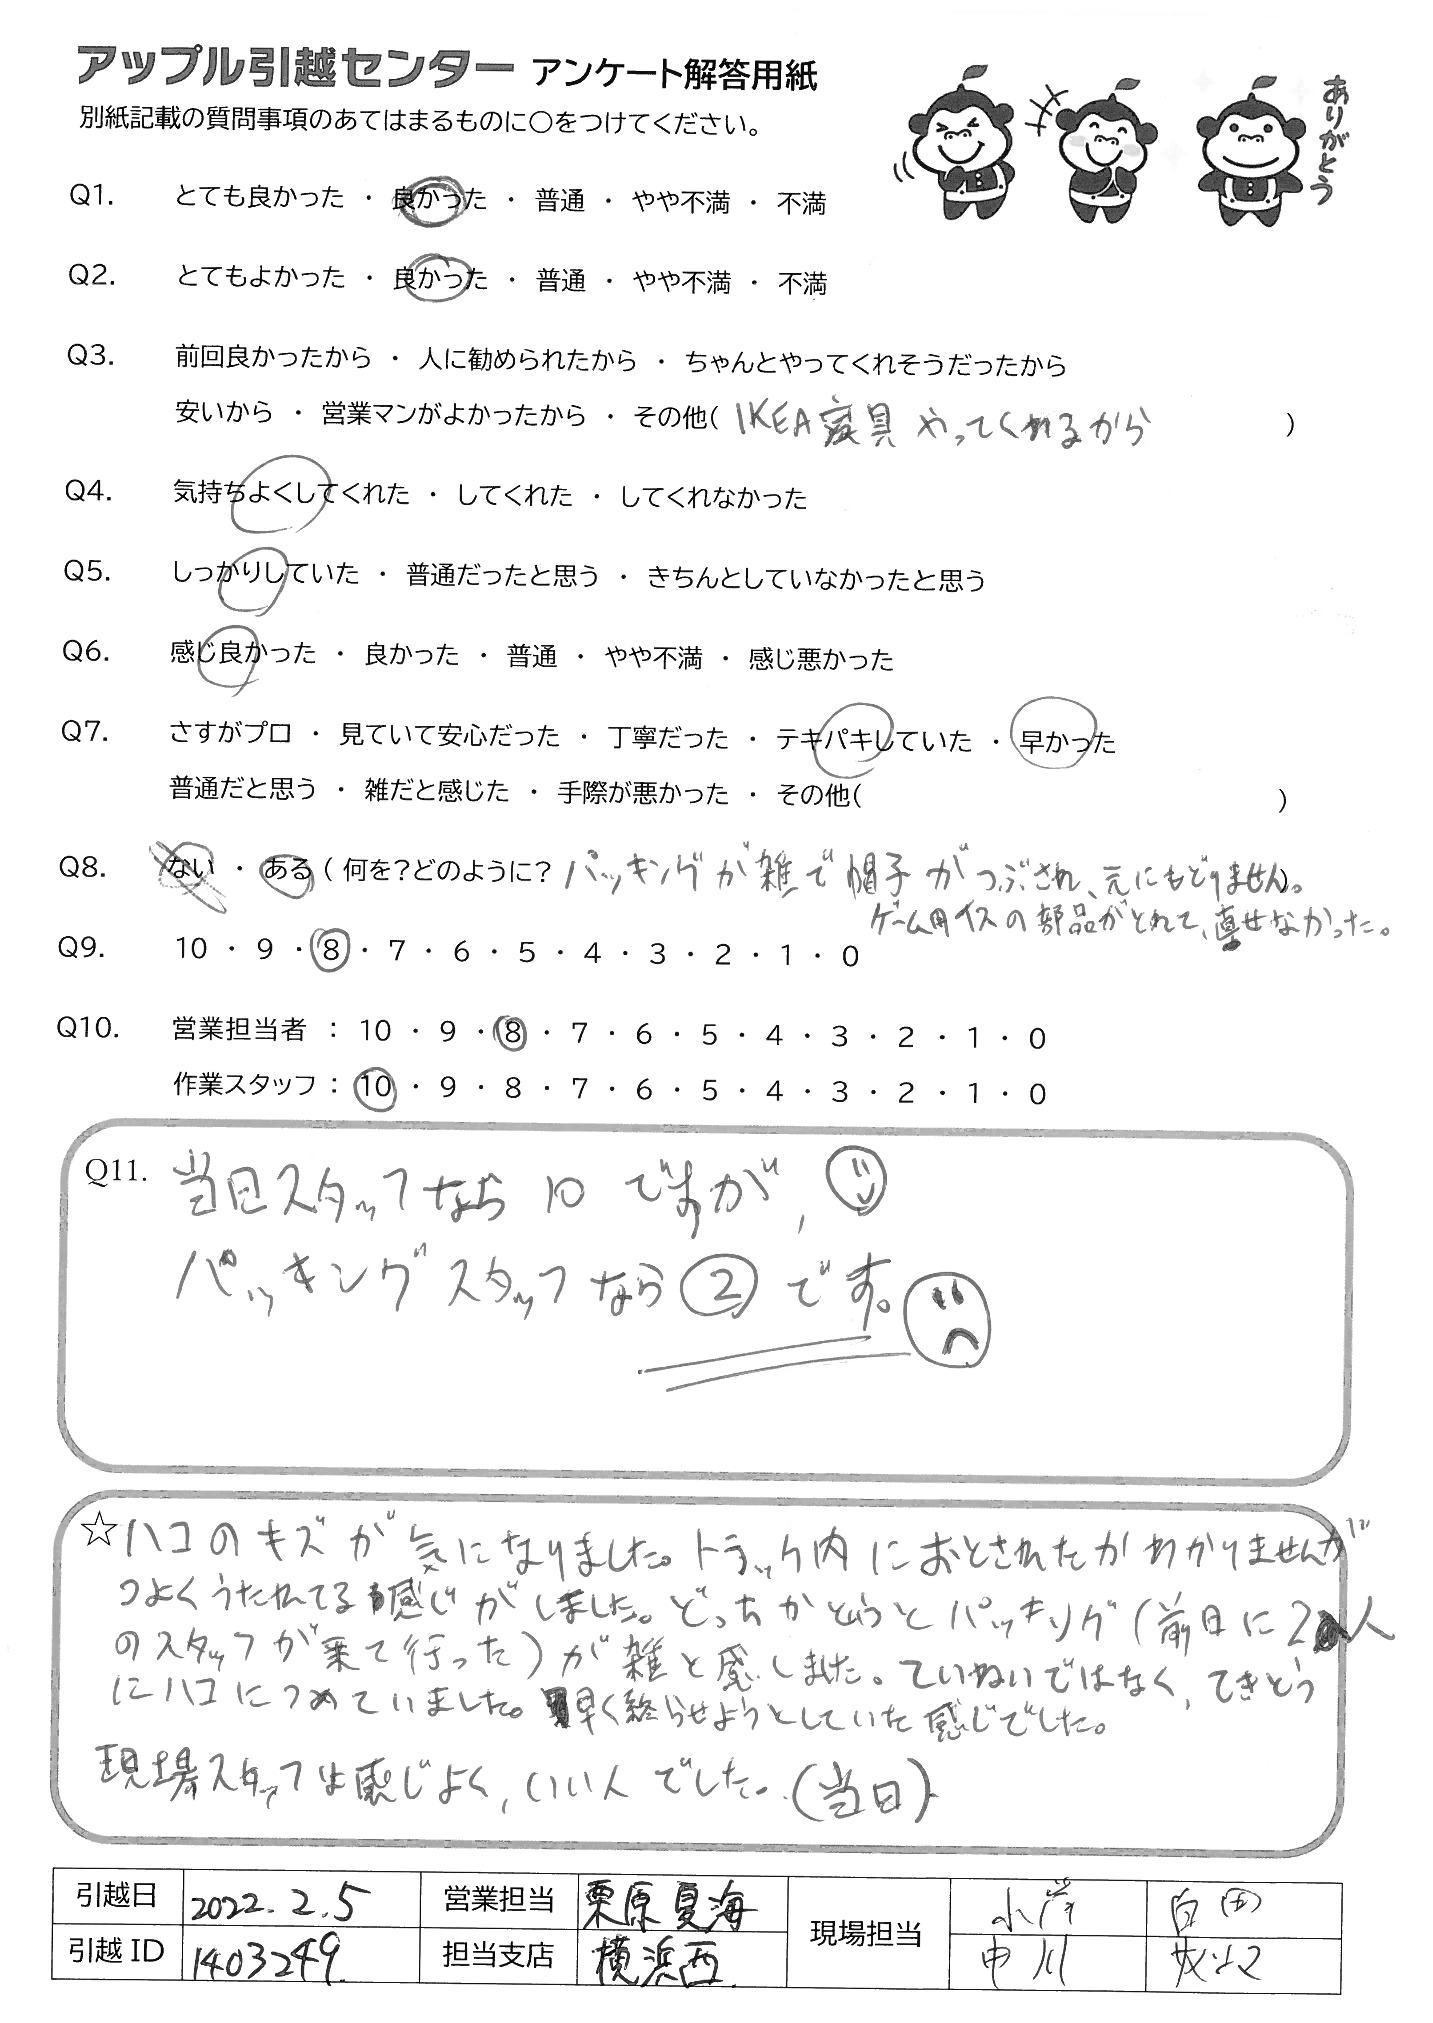 アップル引越センター アンケート解答用紙
別紙記載の質問事項のあてはまるものに○をつけてください。
ありがとう
Q1. とても良かった ・ 良かった ・ 普通 ・ やや不満 ・ 不満
Q2. とてもよかった ・ 良かった ・ 普通 ・ やや不満 ・ 不満
Q3. 前回良かったから ・ 人に勧められたから ・ ちゃんとやってくれそうだったから
安いから ・ 営業マンがよかったから ・ その他( IKEA家具やってくれるから )
Q4. 気持ちよくしてくれた ・ してくれた ・ してくれなかった
Q5. しっかりしていた ・ 普通だったと思う ・ きちんとしていなかったと思う
Q6. 感じ良かった ・ 良かった ・ 普通 ・ やや不満 ・ 感じ悪かった
Q7. さすがプロ ・ 見ていて安心だった ・ 丁寧だった ・ テキパキしていた ・ 早かった
普通だと思う ・ 雑だと感じた ・ 手際が悪かった ・ その他( )
Q8. ない ・ ある ( 何を?どのように? パッキングが雑で帽子がつぶされ、元にもどりません。)
ゲーム用イスの部品がとれて、直せなかった。
Q9. 10 ・ 9 ・ 8 ・ 7 ・ 6 ・ 5 ・ 4 ・ 3 ・ 2 ・ 1 ・ 0
Q10. 営業担当者 : 10 ・ 9 ・ 8 ・ 7 ・ 6 ・ 5 ・ 4 ・ 3 ・ 2 ・ 1 ・ 0
作業スタッフ : 10 ・ 9 ・ 8 ・ 7 ・ 6 ・ 5 ・ 4 ・ 3 ・ 2 ・ 1 ・ 0
Q11. 当日スタッフなら10ですが、
パッキングスタッフなら②です。
☆ハコのキズが気になりました。トラック内におとされたかわかりませんが
つよくうたれてる感じがしました。どっちかというとパッキング(前日に2人
のスタッフが来て行った)が雑と感じました。ていねいではなく、てきとう
にハコにつめていました。早く終らせようとしていた感じでした。
現場スタッフは感じよく、いい人でした。(当日)
引越日 2022.2.5 営業担当 栗原夏海 現場担当 小岸 白田
引越ID 1403249 担当支店 横浜西 中川